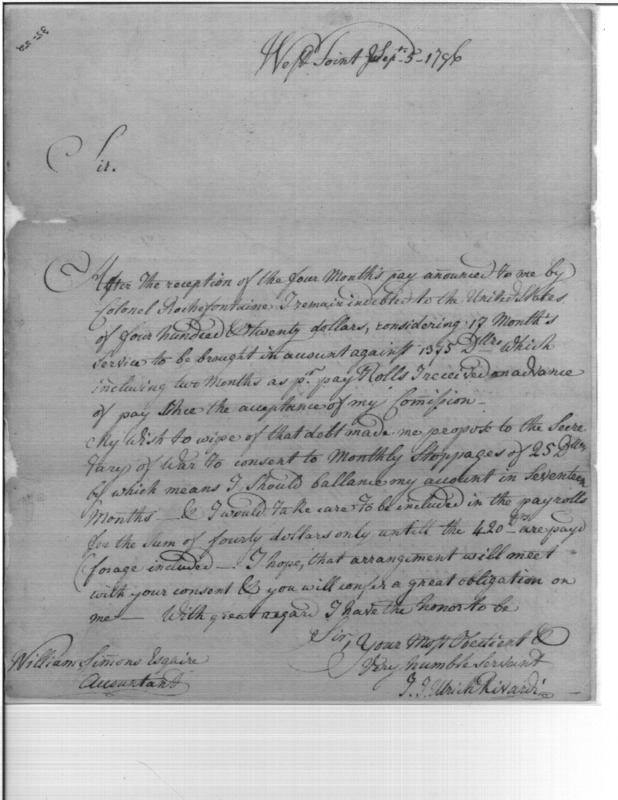 West Point Sepr. 5. 1796
Sir.
After the reception of the four Month's pay anounced to me by
Colonel Rochefontaine I remain indebted to the United States
of four hundred & twenty dollars, considering 17 Month's
Service to be brought in acount against 1375 Dllrs which
including two Months as pr. pay Rolls I received on advance
of pay Since the acceptance of my Comission.
My wish to wipe of that debt made me propose to the Secre
tary of War to consent to Monthly Stoppages of 25 Dllrs
by which means I should ballance my acount in Seventeen
Months — & I would take care to be included in the payrolls
for the sum of fourty dollars only untill the 420 Drs are payd
forage included — I hope, that arrangement will meet
with your consent & you will confer a great obligation on
me — With great regard I have the honor to be
Sir, Your Most Obedient &
Very humble Servant
J. J. Ulrich Rivardi
William Simons Esquire
Acountant